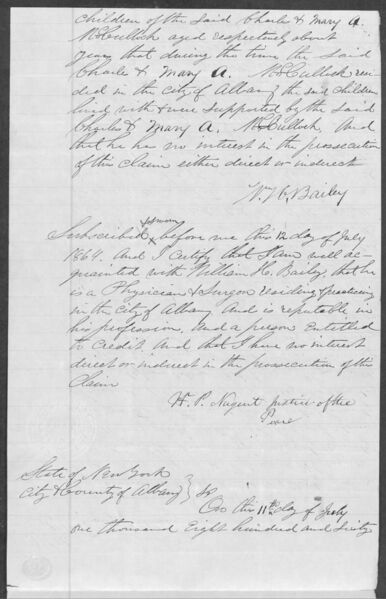 children of the said Charles & Mary A.
McCulloch aged respectively about
years that during the time the said
Charles & Mary A. McCulloch resi
ded in the City of Albany the said children
lived with & were supported by the said
Charles & Mary A. McCulloch. And
that he has no interest in the prosecution
of this claim either direct or indirect
W. H. Bailey
Subscribed & sworn before me this 12 day of July
1864. And I certify that I am well ac-
quainted with William H. Bailey, that he
is a Physician & Surgeon residing & practicing
in the City of Albany And is reputable in
his profession, And a person Entitled
to Credit And that I have no interest
direct or indirect in the prosecution of this
Claim
H. P. Nugent Justice of the
Peace
State of New York
City & County of Albany } ss
On this 11th day of July
one thousand Eight hundred and Sixty